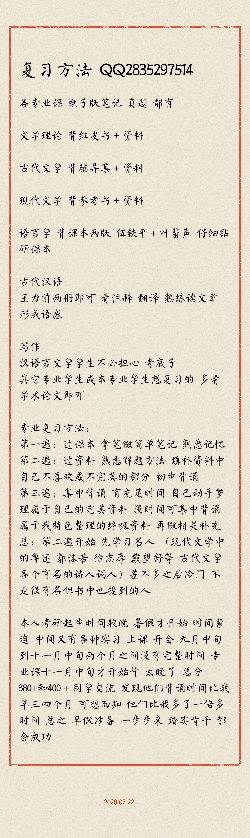 复习方法 QQ2835297514
各专业课 电子版笔记 真题 都有
文学理论 背红皮书+资料
古代文学 背辅导集+资料
现代文学 背参考书+资料
语言学 背课本两版 伍铁平+叶蜚声 仔细钻
研课本
古代汉语
王力前两册即可 看注释 翻译 熟练读文章
形成语感
写作
汉语言文学学生不必担心 看底子
其它专业学生或本专业学生想复习的 多看
学术论文即可
专业复习方法：
第一遍：过课本 拿笔做简单笔记 熟悉记忆
第二遍：过资料 熟悉解题方法 填补资料中
自己不喜欢或不完善的部分 初步背诵
第三遍：集中背诵 有充足时间 自己动手整
理属于自己的完美资料 没时间可集中背诵
属于我特色整理的终极资料 再做相关补充
总：第二遍开始 先学习名人（现代文学中
的鲁迅 郭沫若 徐志摩 戴望舒等 古代文学
各个有名的诗人词人）差不多之后冷门 不
是很有名但书中也提到的人
本人考研起步时间较晚 暑假才开始 时间紧
迫 中间又有各种实习 上课 开会 九月中旬
到十一月中旬两个月之间没有完整时间 专
业课十一月中旬才开始背 太晚了 总分
380+和400+同学交流 发现他们背诵时间比我
早三四个月 可想而知 他们比我多了一倍多
时间 总之 早做准备 一步步来 踏实肯干 都
会成功
2020.07.22